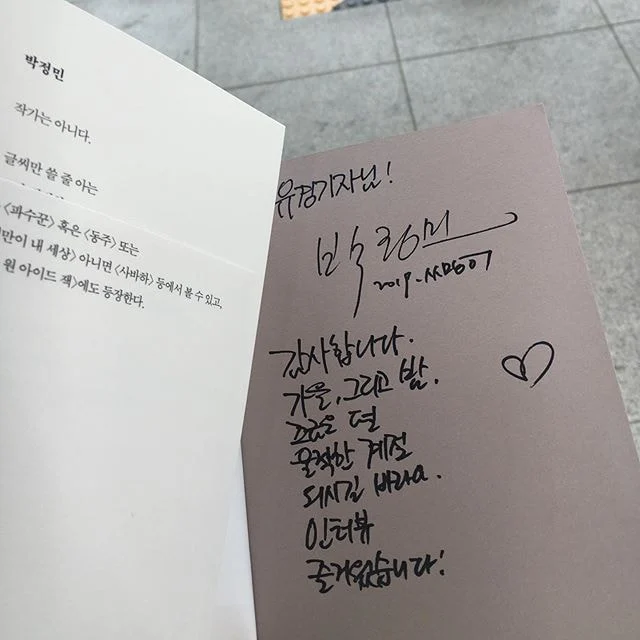 박정민
작가는 아니다.
글씨만 쓸 줄 아는
<파수꾼> 혹은 <동주> 또는
만이 내 세상> 아니면 <사바하> 등에서 볼 수 있고,
원 아이드 잭>에도 등장한다.
유경기자님!
박정민
감사합니다.
가을, 그리고 밤.
조금은 덜
울적한 계절
되시길 바라요.
인터뷰
즐거웠습니다!